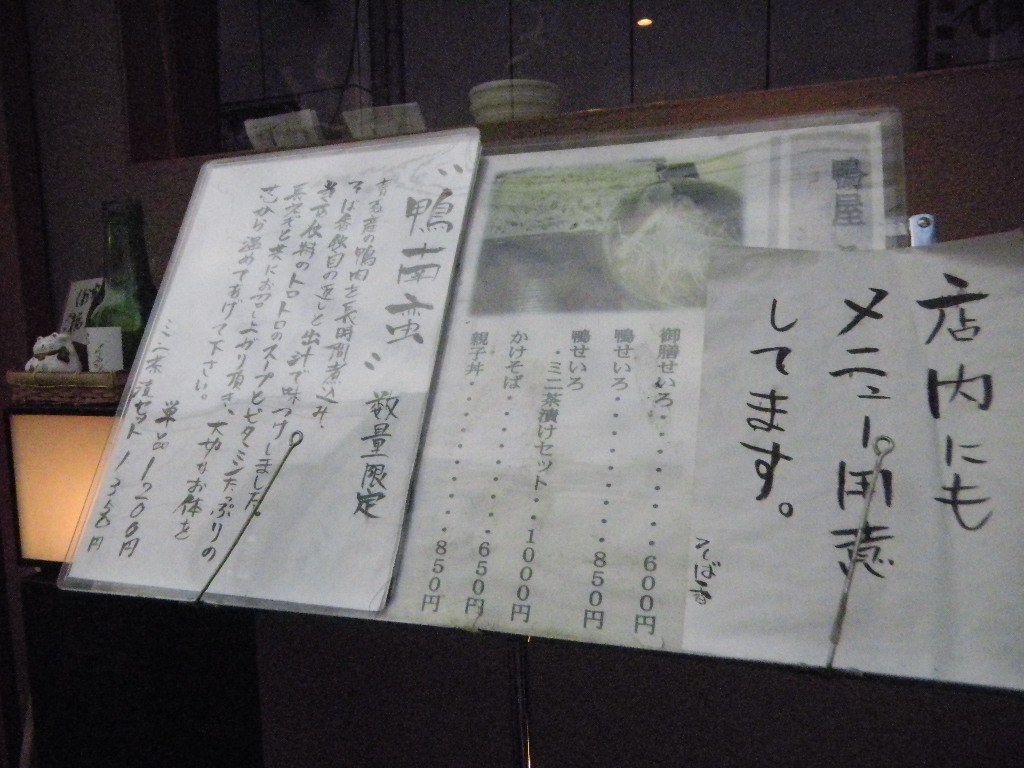 店内にも
メニュー用意
してます。
そば香
鴨屋
御膳せいろ・・・・・・・・600円
鴨せいろ・・・・・・・・・850円
鴨せいろ
・ミニ茶漬けセット・・1000円
かけそば・・・・・・・・・650円
親子丼・・・・・・・・・・850円
〝鴨南蛮〟 数量限定
産の鴨肉を長時間煮込み、
そば香飲自の返しと出汁で味つけしました。
のトロトロのスープとビタミンたっぷりの
長ネギと共にお召し上がり頂き、大切なお体を
芯から温めてあげて下さい。
単品 1200円
ミニ茶漬セット 1350円